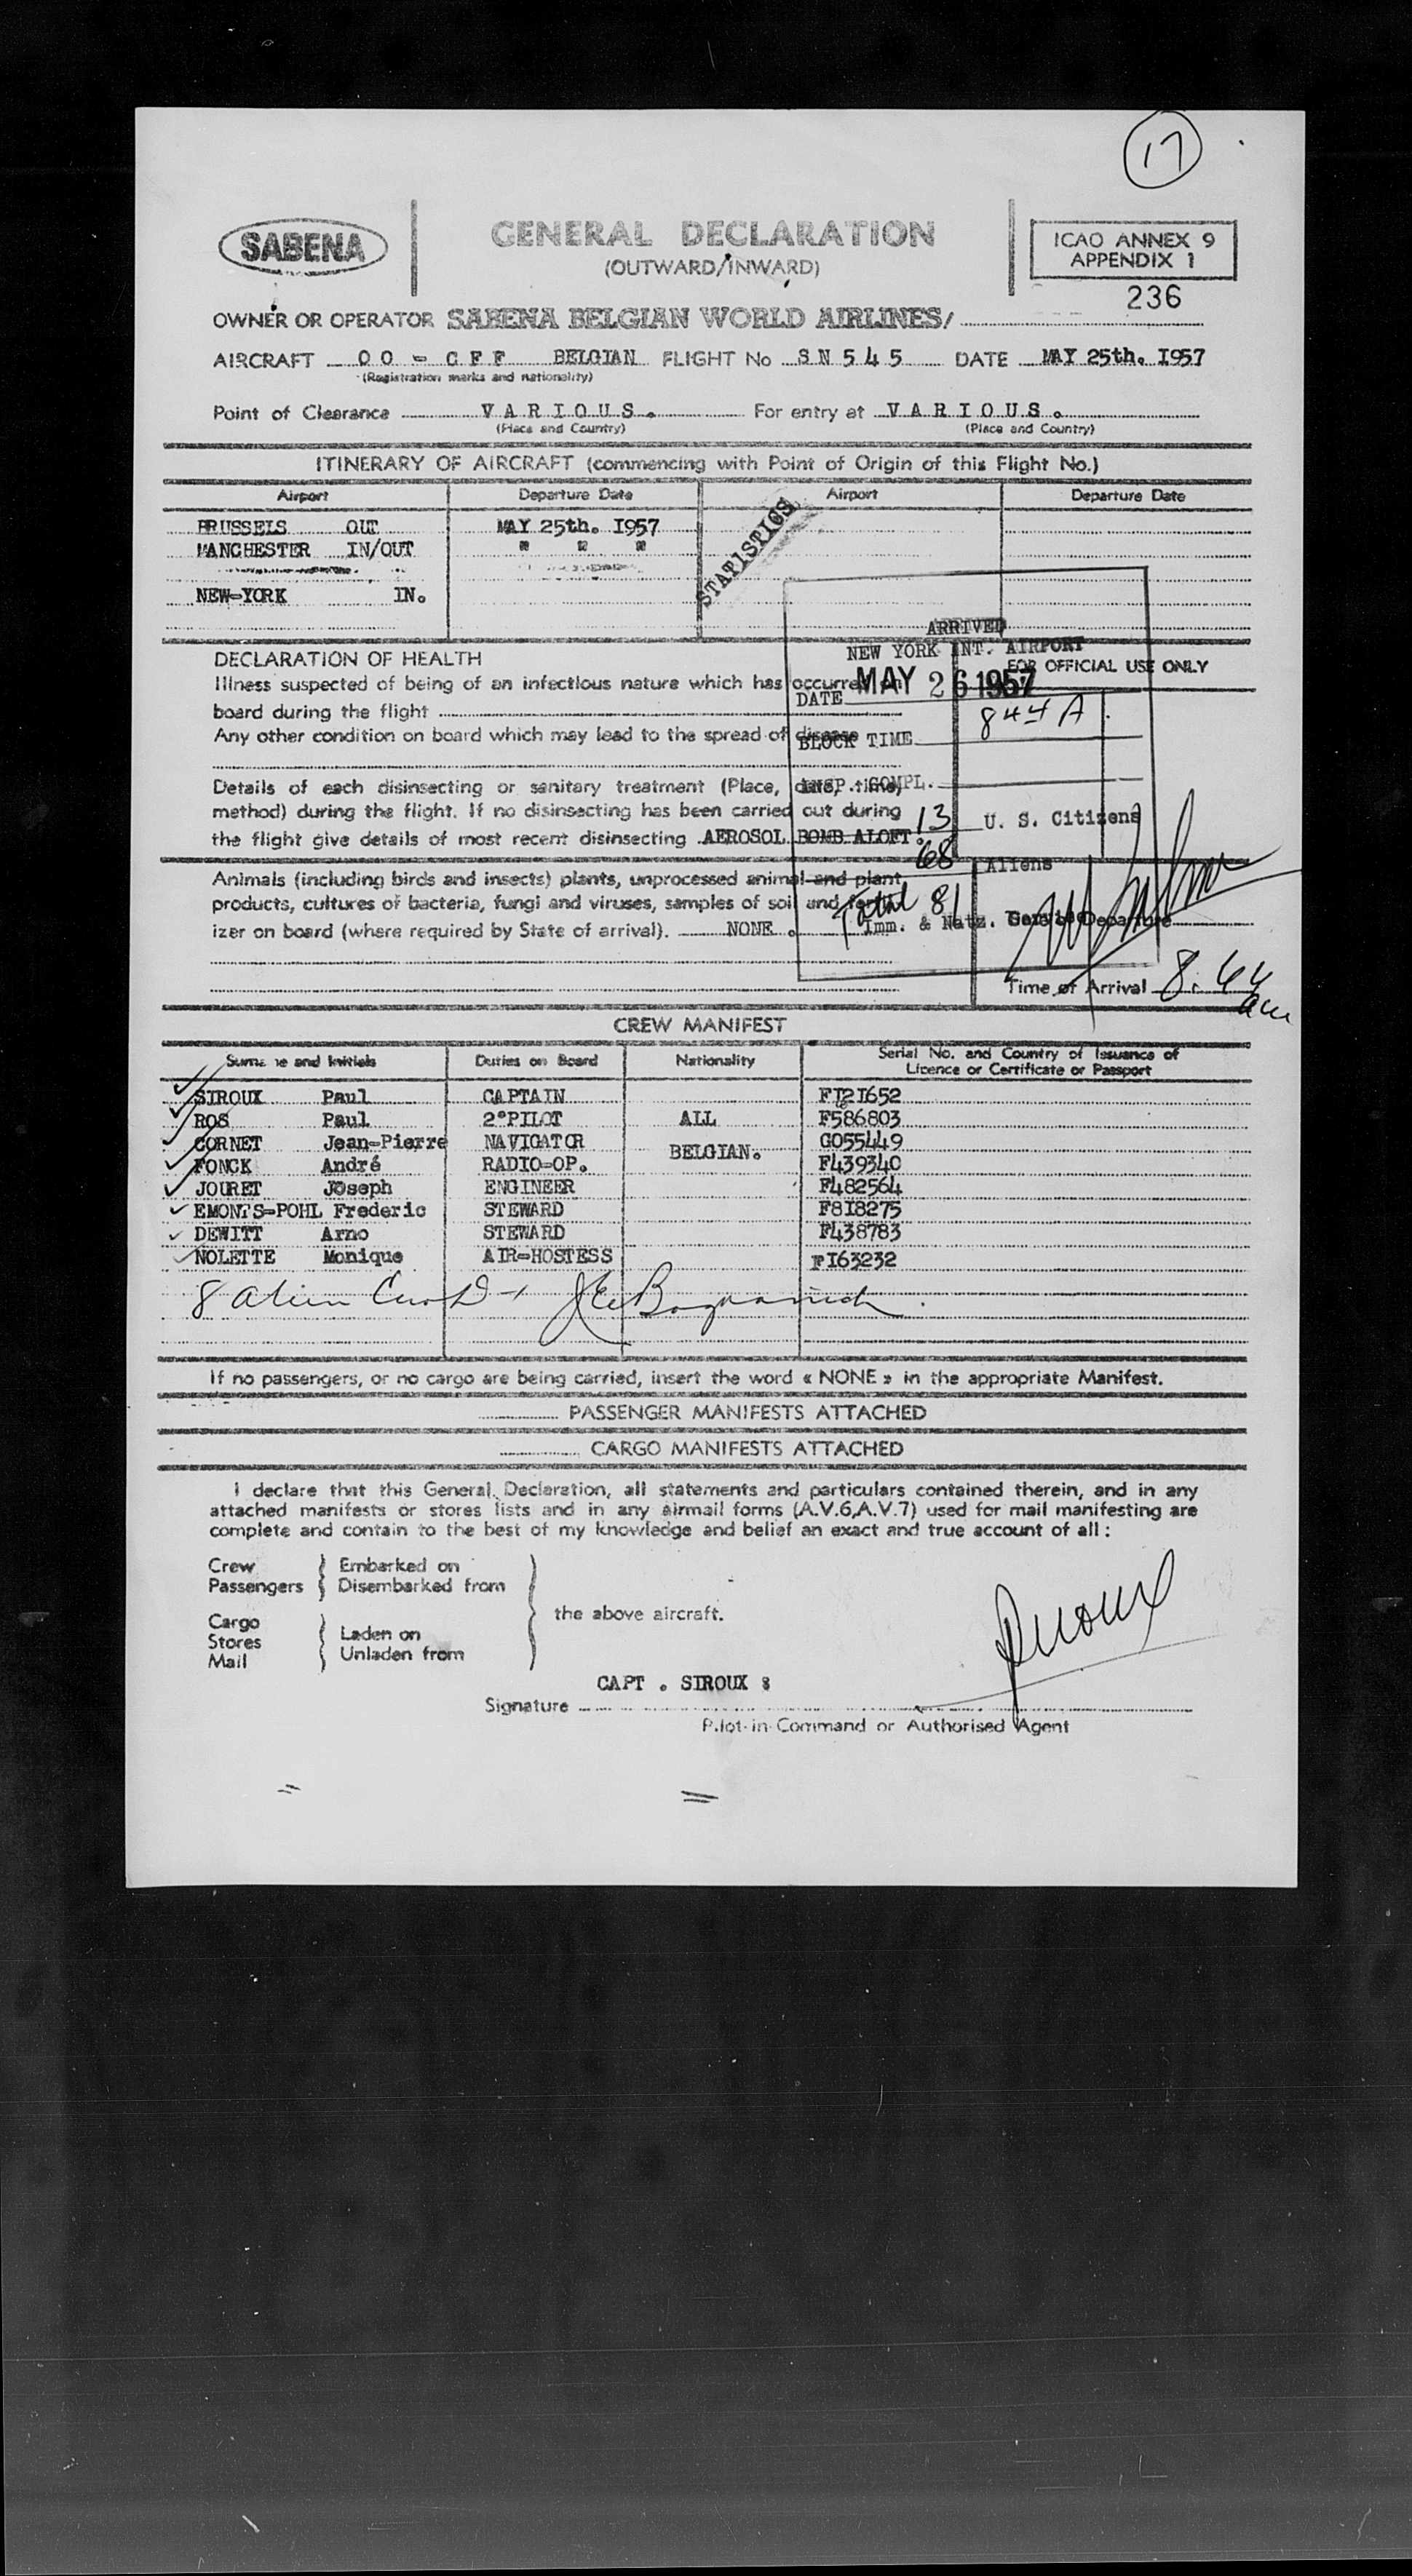 17
SABENA
GENERAL DECLARATION
(OUTWARD/INWARD)
ICAO ANNEX 9
APPENDIX 1
236
OWNER OR OPERATOR SABENA BELGIAN WORLD AIRLINES/
AIRCRAFT OO - CFF BELGIAN FLIGHT No SN 545 DATE MAY 25th. I957
(Registration marks and nationality)
Point of Clearance VARIOUS. For entry at VARIOUS.
(Place and Country) (Place and Country)
ITINERARY OF AIRCRAFT (commencing with Point of Origin of this Flight No.)
Airport Departure Date Airport Departure Date
BRUSSELS OUT MAY 25th. I957
MANCHESTER IN/OUT " " "
NEW-YORK IN.
STATISTICS
ARRIVED
NEW YORK INT. AIRPORT
DATE MAY 26 1957
BLOCK TIME 844 A
INSP. COMPL.
13 U. S. Citizens
68 Aliens
Total 81
Imm. & Natz. Service
DECLARATION OF HEALTH
FOR OFFICIAL USE ONLY
Illness suspected of being of an infectious nature which has occurred on
board during the flight
Any other condition on board which may lead to the spread of disease
Details of each disinsecting or sanitary treatment (Place, date, time,
method) during the flight. If no disinsecting has been carried out during
the flight give details of most recent disinsecting AEROSOL BOMB ALOFT.
Animals (including birds and insects) plants, unprocessed animal and plant
products, cultures of bacteria, fungi and viruses, samples of soil and fertil-
izer on board (where required by State of arrival). NONE .
Time of Departure
Time of Arrival 8:44 am
CREW MANIFEST
Surname and Initials Duties on Board Nationality Serial No. and Country of Issuance of
Licence or Certificate or Passport
SIROUX Paul CAPTAIN FI2I652
ROS Paul 2°PILOT ALL F586803
CORNET Jean-Pierre NAVIGATOR G055449
BELGIAN.
FONCK André RADIO-OP. F439340
JOURET Joseph ENGINEER F482564
EMONTS-POHL Frederic STEWARD F8I8275
DEWITT Arno STEWARD F438783
NOLETTE Monique AIR-HOSTESS FI63232
8 alien
If no passengers, or no cargo are being carried, insert the word « NONE » in the appropriate Manifest.
PASSENGER MANIFESTS ATTACHED
CARGO MANIFESTS ATTACHED
I declare that this General Declaration, all statements and particulars contained therein, and in any
attached manifests or stores lists and in any airmail forms (A.V.6,A.V.7) used for mail manifesting are
complete and contain to the best of my knowledge and belief an exact and true account of all :
Crew Embarked on
Passengers Disembarked from
the above aircraft.
Cargo
Stores Laden on
Mail Unladen from
CAPT . SIROUX :
Siroux
Signature
Pilot-in-Command or Authorised Agent